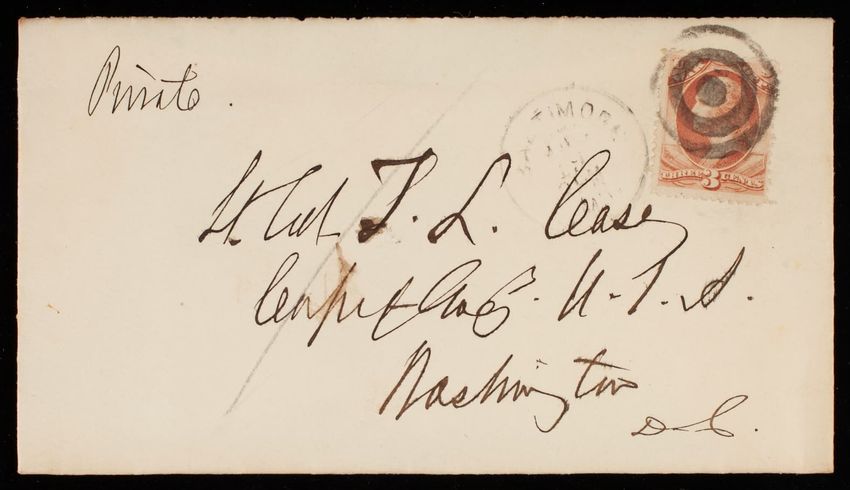 Private.
BALTIMORE
THREE 3 CENTS
Lt Col T. L. Casey
Corps of Eng. U.S.A.
Washington
D.C.